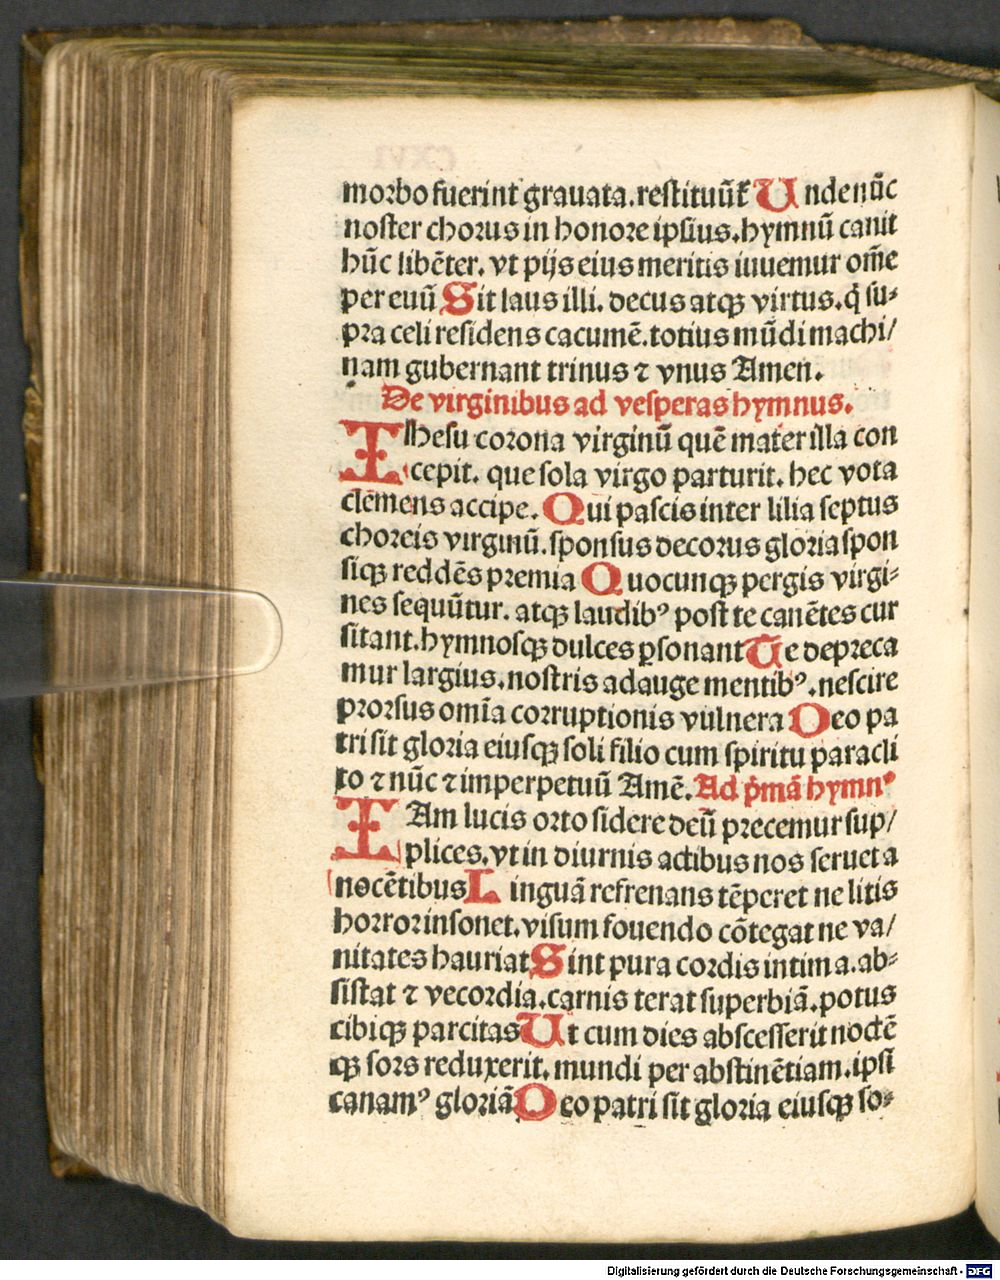 morbo fuerint grauata. restituũt᷑ Unde nũc
noster chorus in honore ipsius. hymnũ canit
hũc libẽter. vt pijs eius meritis iuuemur om̃e
per euũ Sit laus illi. decus atqꝫ virtus. q̇ su⸗
pra celi residens cacumẽ. totius mũdi machi/
nam gubernant trinus ⁊ vnus Amen.
De virginibus ad vesperas hymnus.
IHesu corona virginũ quẽ mater illa con
cepit. que sola virgo parturit. hec vota
clẽmens accipe. Qui pascis inter lilia septus
choreis virginũ. sponsus decorus gloria spon
siqꝫ reddẽs premia Quocunqꝫ pergis virgi⸗
nes sequũtur. atqꝫ laudibꝰ post te canẽtes cur
sitant. hymnosqꝫ dulces ꝑsonant Te depreca
mur largius. nostris adauge mentibꝰ. nescire
prorsus omĩa corruptionis vulnera Deo pa
tri sit gloria eiusqꝫ soli filio cum spiritu paracli
to ⁊ nũc ⁊ imperpetuũ Amẽ. Ad p̃mã hymnꝰ
IAm lucis orto sidere deũ precemur sup/
plices. vt in diurnis actibus nos seruet a
nocẽtibus Linguã refrenans tẽperet ne litis
horror insonet. visum fouendo cõtegat ne va/
nitates hauriat Sint pura cordis intima. ab⸗
sistat ⁊ vecordia. carnis terat superbiã. potus
cibiqꝫ parcitas Ut cum dies abscesserit noctẽ
qꝫ sors reduxerit. mundi per abstinẽtiam. ipsi
canamꝰ gloriã Deo patri sit gloria eiusqꝫ so⸗
Digitalisierung gefördert durch die Deutsche Forschungsgemeinschaft - DFG